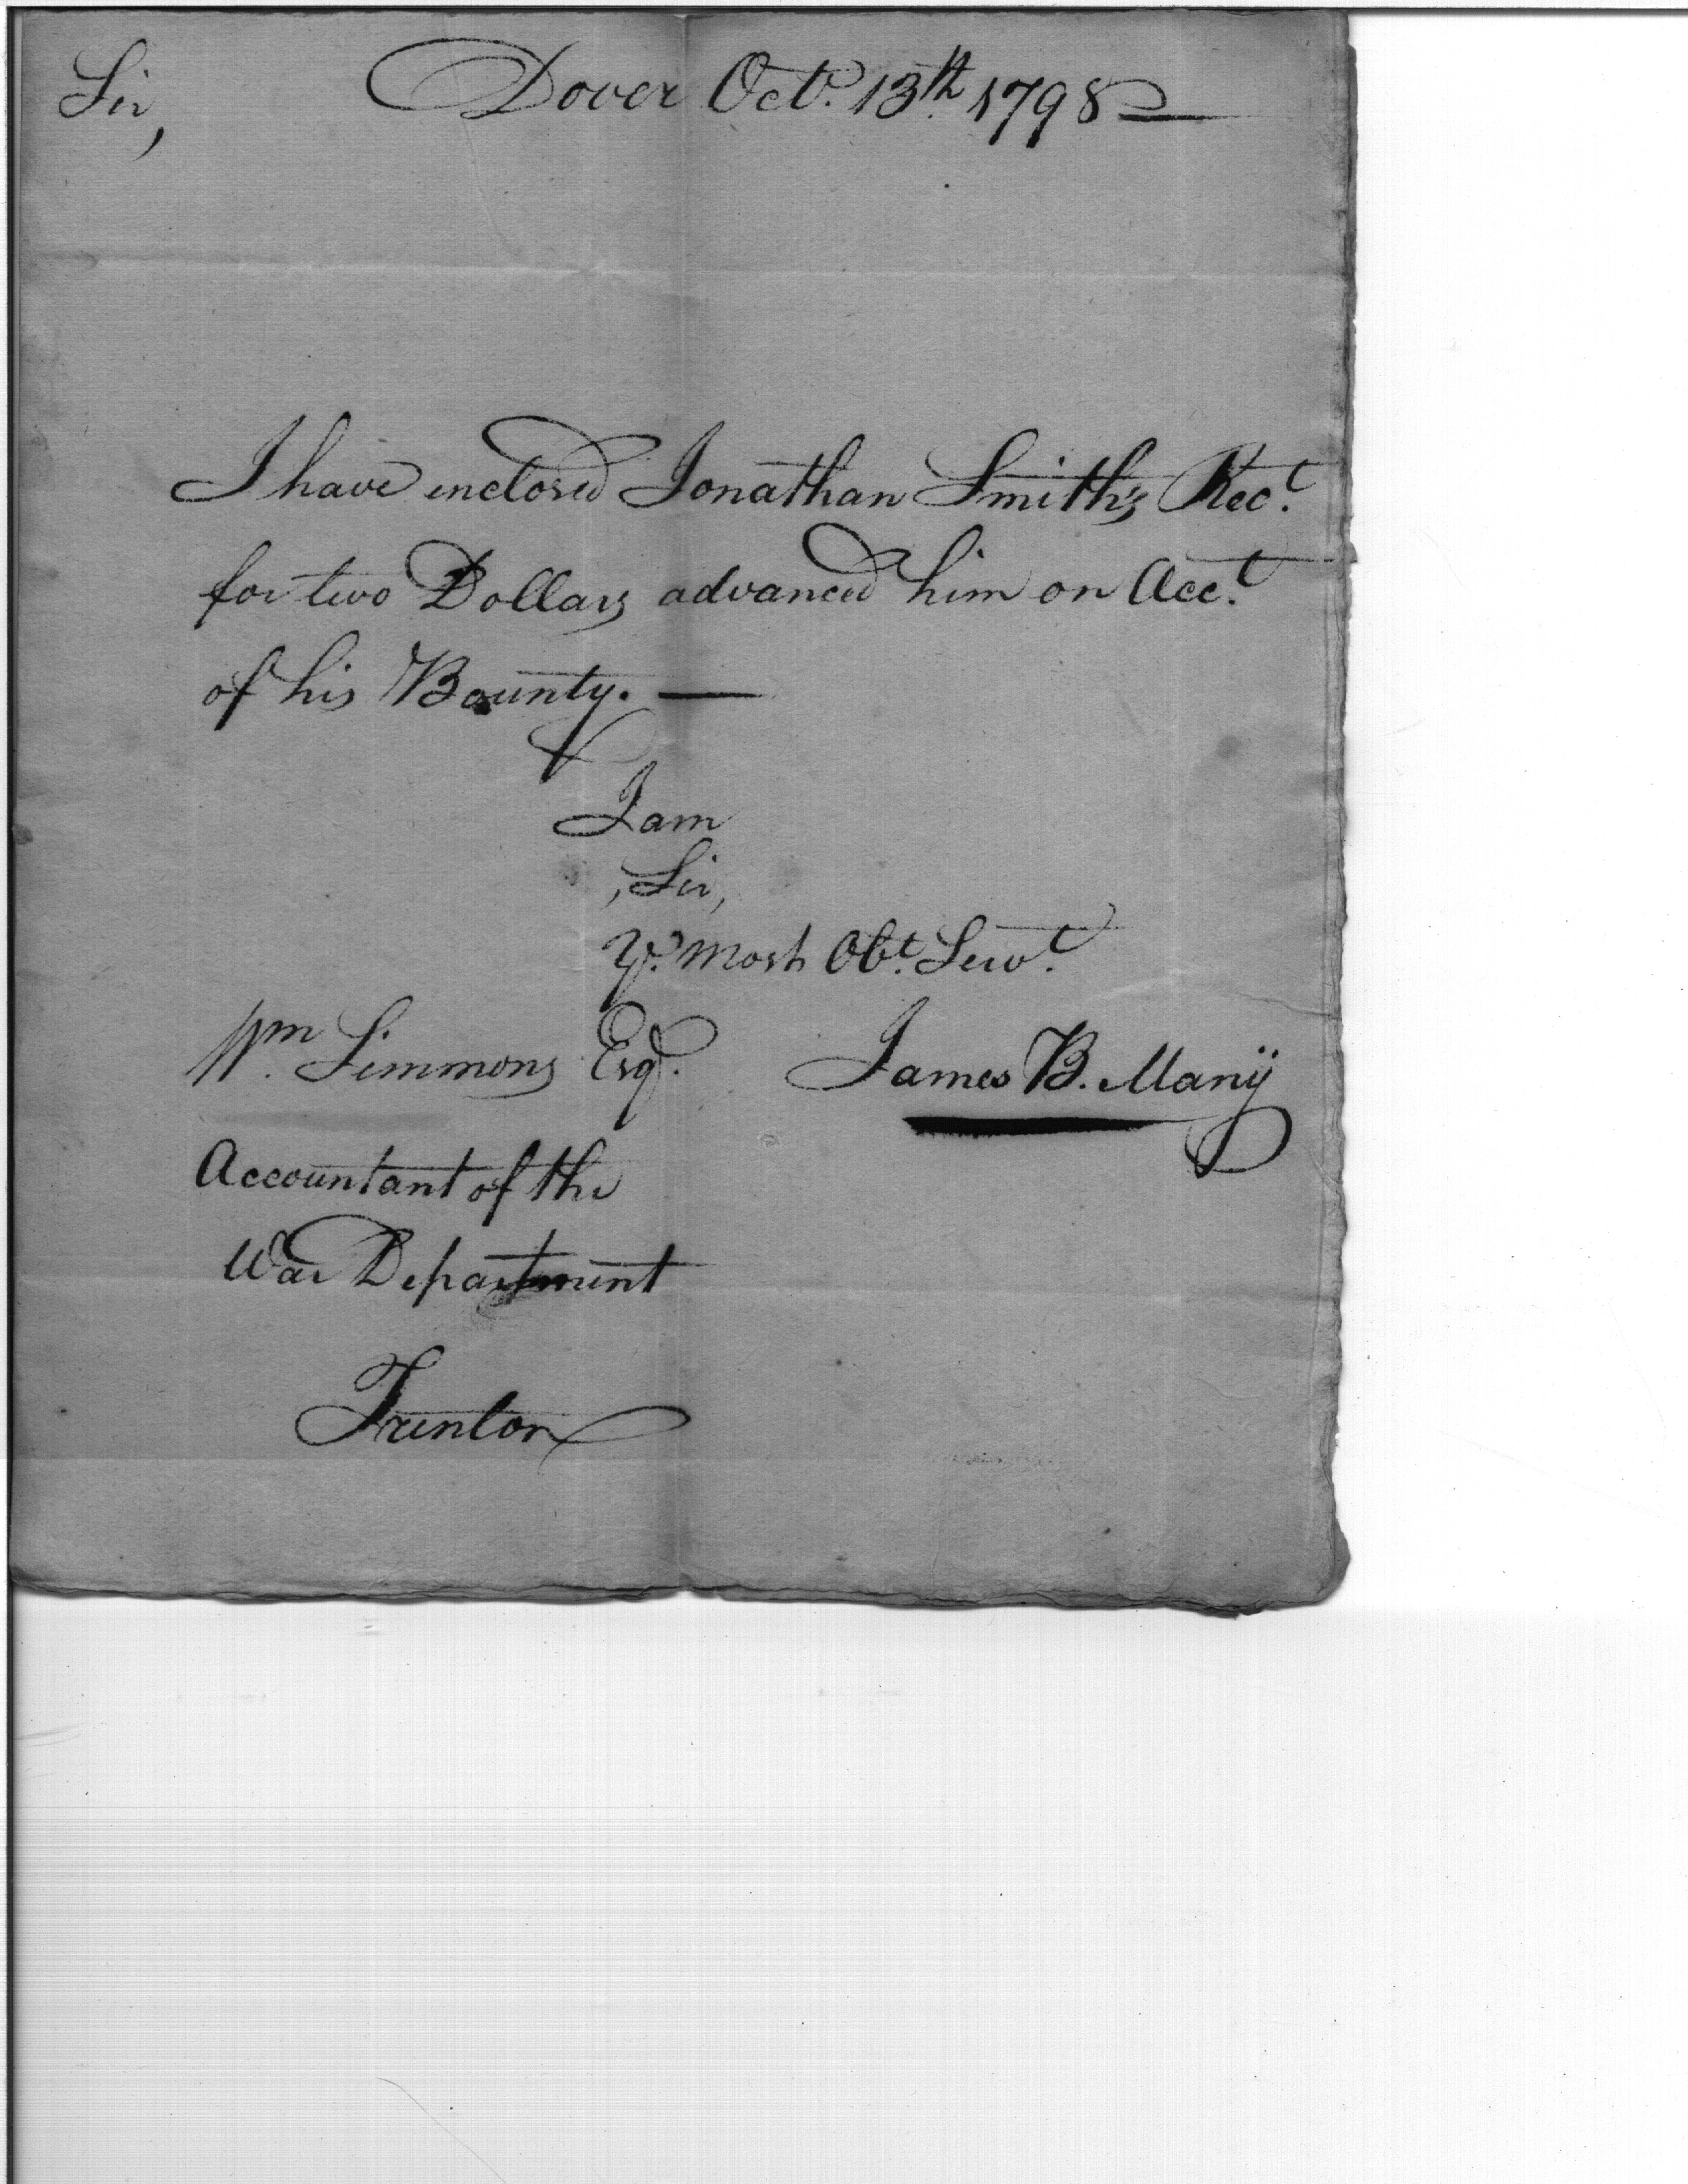 Sir, Dover Oct. 13th 1798
I have enclosed Jonathan Smith's Rec.t
for two Dollars advanced him on Acc.t
of his Bounty. —
I am
, Sir,
Yr. most Obt. Servt.
Wm. Simmons Esqr. James B. Manÿ
Accountant of the
War Department
Trenton